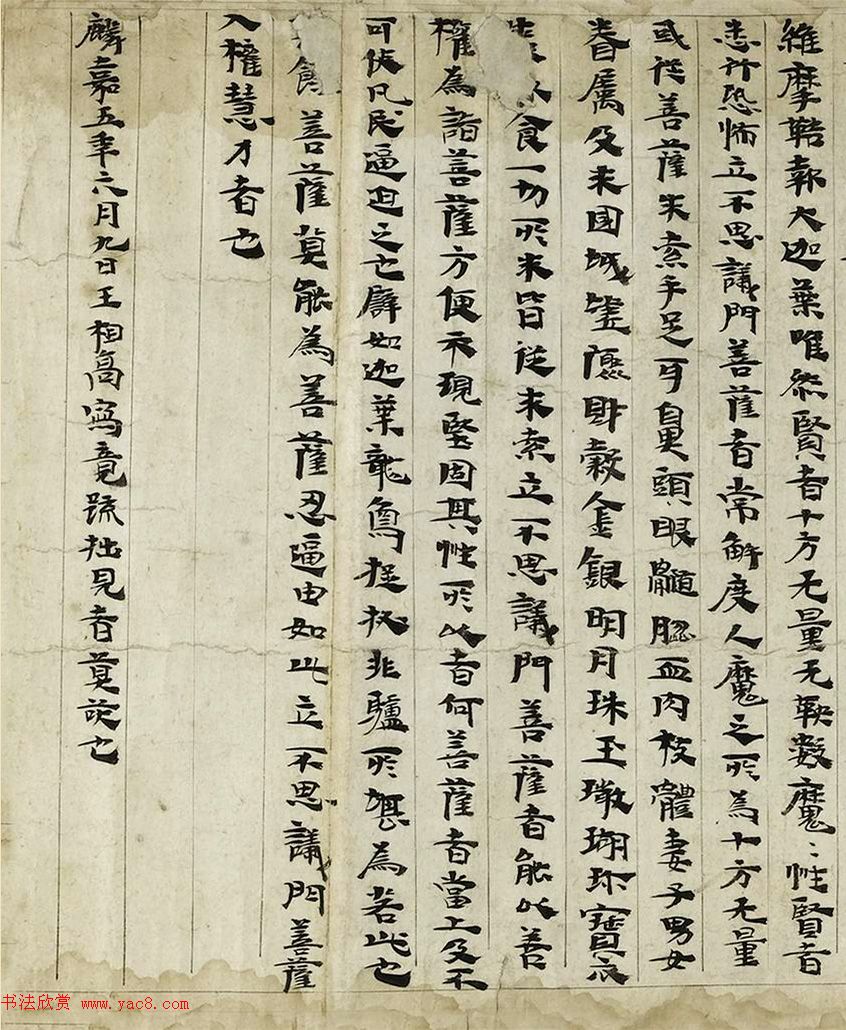 維摩鞊報大迦葉唯然賢者十方无量无鞅數魔〻恠賢者
悉行恐怖立不思議門菩薩者常解度人魔之所為十方无量
或從菩薩求索手足耳鼻頭眼髓腦血肉枝體妻子男女
眷屬及求國城墟財穀金銀明月珠玉珊瑚珍寶衣
食一切所求皆從求索立不思議門菩薩者能以善
權為諸菩薩方便示現堅固其性所以者何菩薩者當上及不
可使凡民逼迫之也譬如迦葉龍象非驢所堪為若此也
餘菩薩莫能為菩薩忍逼由如此立不思議門菩薩
入權慧力者也
麟嘉五年六月九日王相高寫竟疏拙見者莫笑也
书法欣赏 www.yac8.com